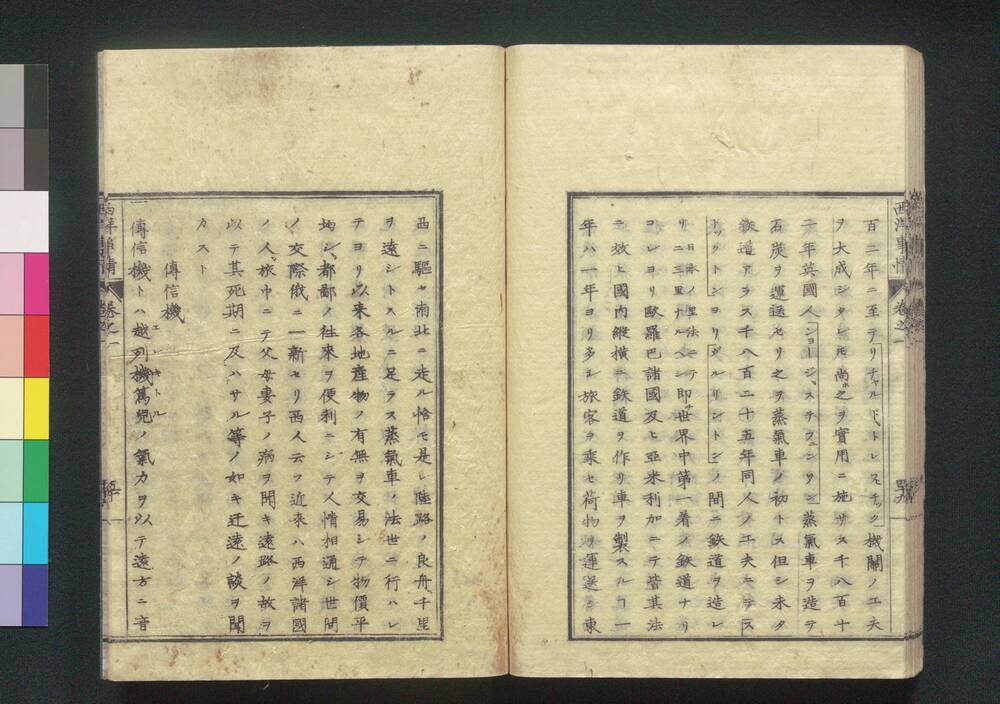 西洋事情 卷之一 四九
百二年ニ至テリチャルド、トレスチック機關ノ工夫
ヲ大成シタレモ尚ホ之ヲ實用ニ施サス千八百十
二年英國人ジョージ、ステフェンソン蒸氣車ヲ造テ
石炭ヲ運送セリ之ヲ蒸氣車ノ初トス但シ未タ
鉄道アラス千八百二十五年同人ノ工夫ニテス
トックトンヨリダルリントンノ間ニ鉄道ヲ造レ
リ日本ノ里法ニテ二三里ナルヘシ即チ世界中第一着ノ鉄道ナリ
コレヨリ歐羅巴諸國及ヒ亞米利加ニテ皆其法
ニ效ヒ國内縱横ニ鉄道ヲ作リ車ヲ製スルヿ一
年ハ一年ヨリ多シ旅客ヲ乘セ荷物ヲ運送シ東
西ニ駆セ南北ニ走ル恰モ是レ陸路ノ良舟千里
ヲ遠シトスルニ足ラス蒸氣車ノ法世ニ行ハレ
テヨリ以来各地産物ノ有無ヲ交易シテ物價平
均シ、都鄙ノ往來ヲ便利ニシテ人情相通シ世間
ノ交際俄ニ一新セリ西人云フ近來ハ西洋諸國
ノ人、旅中ニテ父母妻子ノ病ヲ聞キ遠路ノ故ヲ
以テ其死期ニ及ハサル等ノ如キ迂遠ノ談ヲ聞
カスト
傳信機
傳信機トハ越列機篤兒ノ氣力ヲ以テ遠方ニ音
エレキトル